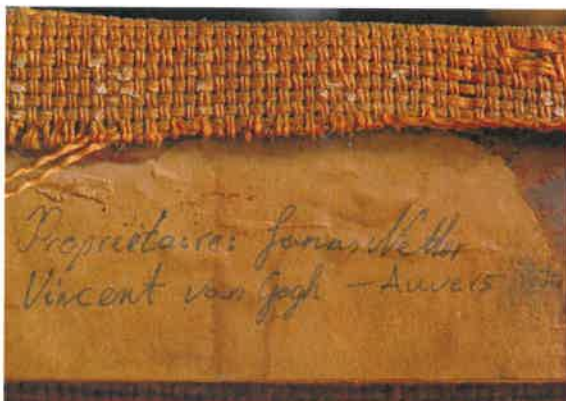 Propriétaire: Jonas Netter
Vincent van Gogh – Auvers